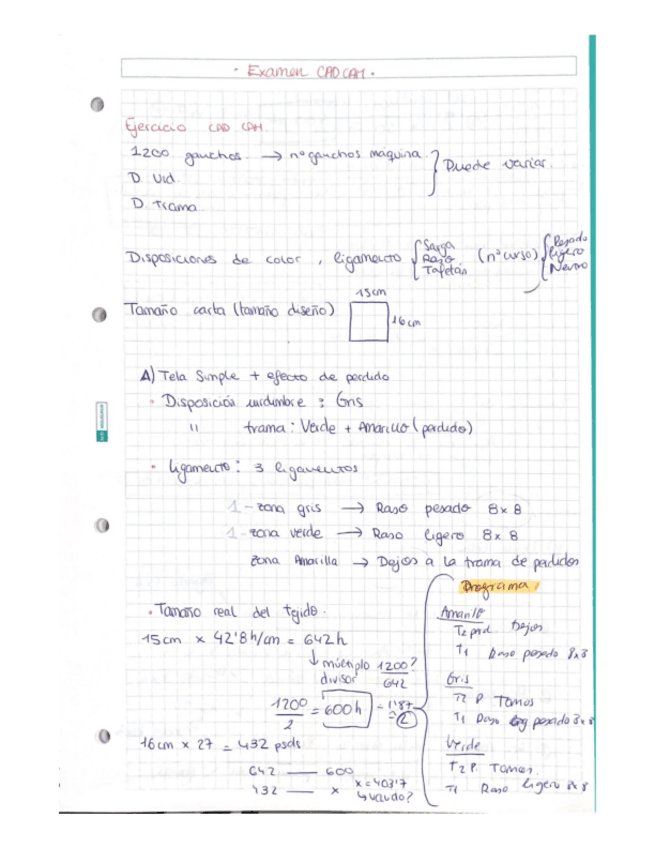 · Examen CAD CAM ·
Ejercicio CAD CAM.
1200 ganchos. → nº ganchos máquina. } Puede variar.
D. Urd.
D. trama
Disposiciones de color, ligamento { Sarga Raso Tafetán (nº curso) { Pesado ligero Neutro
15cm
Tamaño carta (tamaño diseño)
16cm
A) Tela Simple + efecto de perdido
• Disposición urdimbre : Gris
" trama : Verde + Amarillo (perdido)
• ligamento : 3 ligamentos
1 - zona gris → Raso pesado 8x8
1 - zona verde → Raso ligero 8x8
zona Amarilla → Dejos a la trama de perdidos
Programa
• Tamaño real del tejido.
15cm x 42'8h/cm = 642h
↓ múltiplo divisor 1200? / 642
1200 / 2 = 600h = 1'87 ≈ 2
16cm x 27 = 432 psds
642 — 600
432 — x x = 403'7
↳ válido?
Amarillo
T2 pd. Dejos
T1 Raso pesado 8x8
Gris
T2 P Tomos
T1 Raso pesado 8x8
Verde
T2 P. Tomos.
T1 Raso ligero 8x8